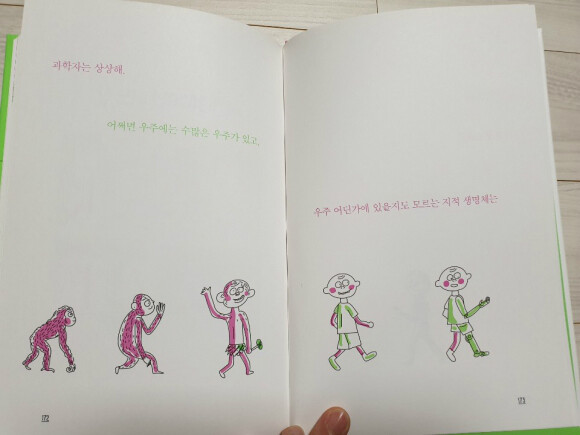 과학자는 상상해.
어쩌면 우주에는 수많은 우주가 있고,
우주 어딘가에 있을지도 모르는 지적 생명체는
172
173